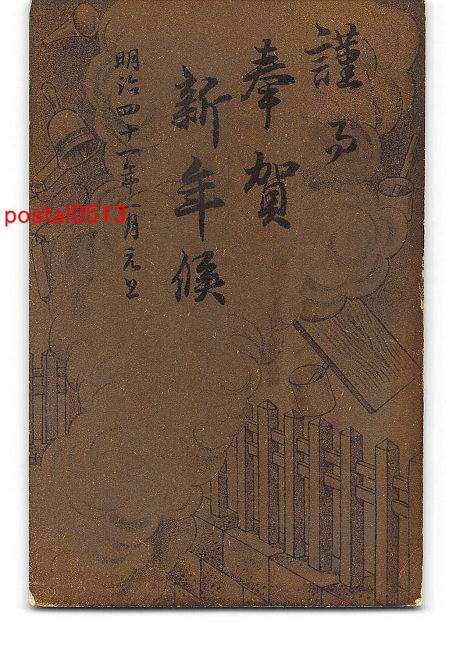 謹而
奉賀
新年候
明治四十一年一月元旦
postal0513